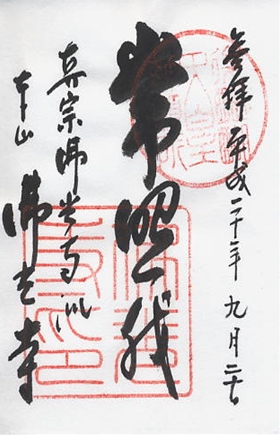 参拝 平成二十一年九月二十日
常照我
真宗佛光寺派
本山
佛光寺